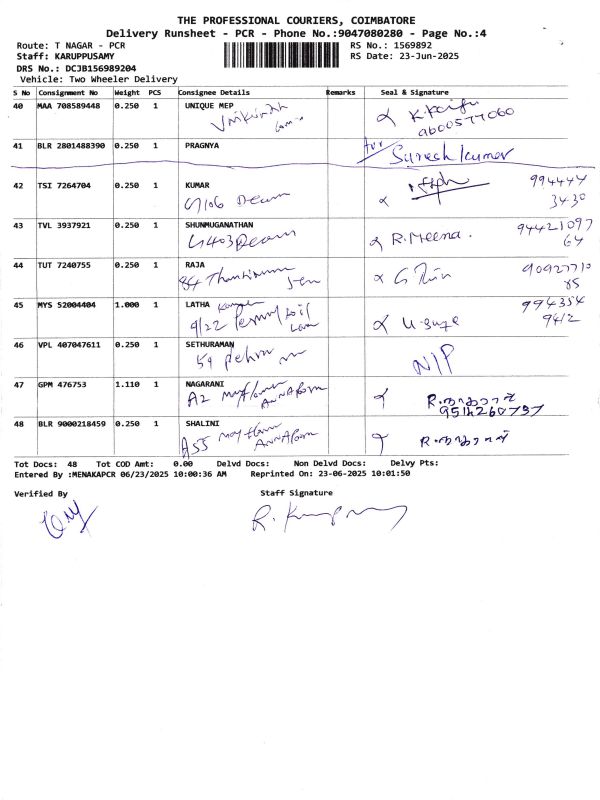 THE PROFESSIONAL COURIERS, COIMBATORE
Delivery Runsheet - PCR - Phone No.:9047080280 - Page No.:4
Route: T NAGAR - PCR RS No.: 1569892
Staff: KARUPPUSAMY RS Date: 23-Jun-2025
DRS No.: DCJB156989204
Vehicle: Two Wheeler Delivery
S No Consignment No Weight PCS Consignee Details Remarks Seal & Signature
40 MAA 708589448 0.250 1 UNIQUE MEP
41 BLR 2801488390 0.250 1 PRAGNYA
Suresh kumar
42 TSI 7264704 0.250 1 KUMAR 994444
3430
43 TVL 3937921 0.250 1 SHUNMUGANATHAN
G403 R. Meena. 94421097
64
44 TUT 7240755 0.250 1 RAJA
84 90927710
85
45 MYS 52004404 1.000 1 LATHA 994354
9/22 9412
46 VPL 407047611 0.250 1 SETHURAMAN
59 N/P
47 GPM 476753 1.110 1 NAGARANI
A2 mayflower
48 BLR 9000218459 0.250 1 SHALINI
A55
Tot Docs: 48 Tot COD Amt: 0.00 Delvd Docs: Non Delvd Docs: Delvy Pts:
Entered By :MENAKAPCR 06/23/2025 10:00:36 AM Reprinted On: 23-06-2025 10:01:50
Verified By Staff Signature